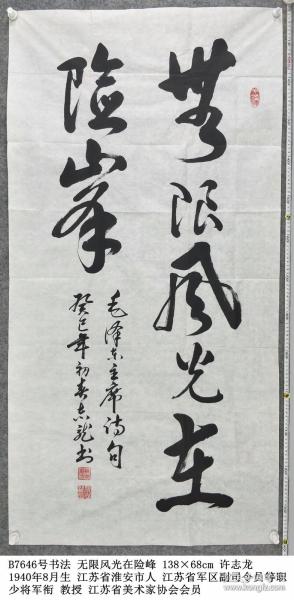 無限风光在
險山峯
毛泽东主席诗句
癸巳年初春志龙书
B7646号书法 无限风光在险峰 138×68cm 许志龙
1940年8月生 江苏省淮安市人 江苏省军区副司令员等职
少将军衔 教授 江苏省美术家协会会员